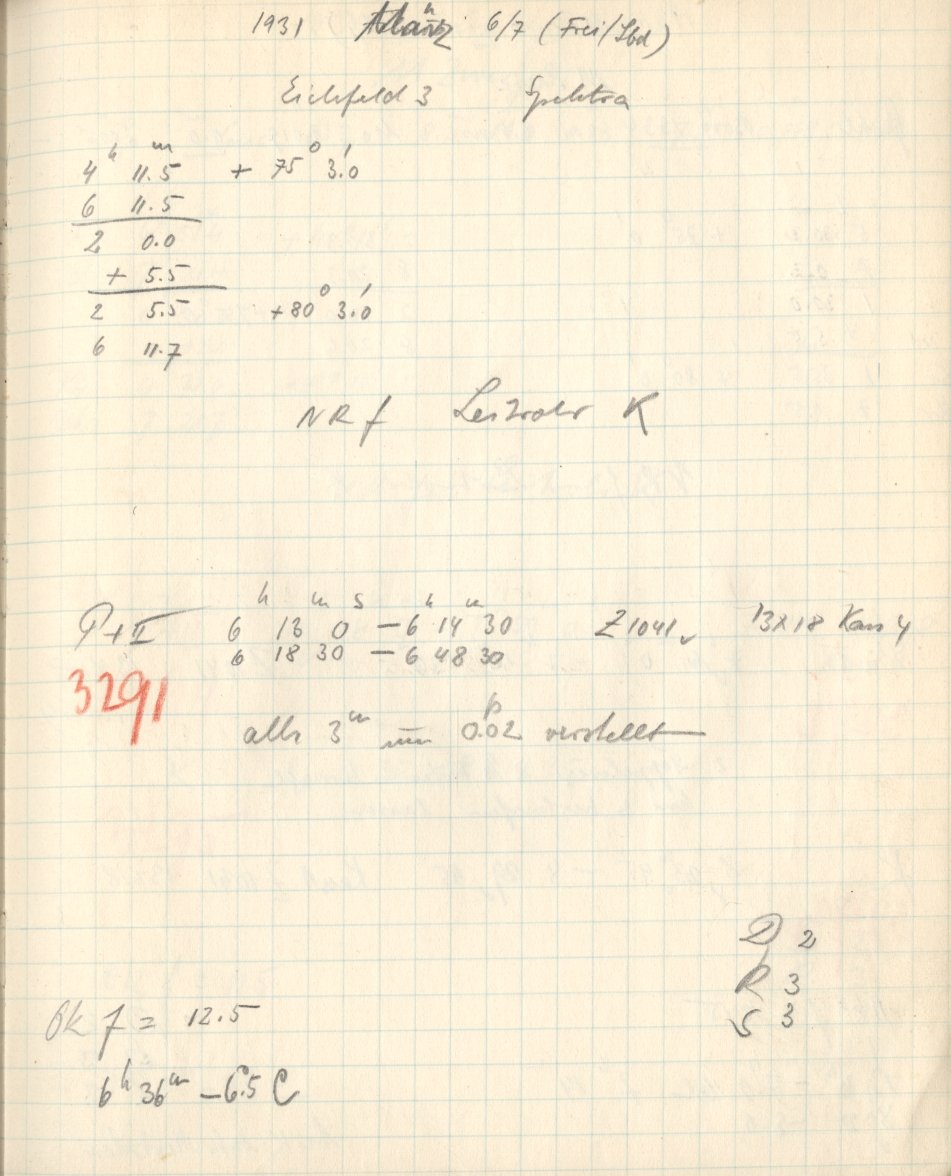 1931 März 6/7 (Frei/Sbd)
Eichfeld 3 Spektra
4h 11.5m + 75° 3.'0
6 11.5
2 0.0
+ 5.5
2 5.5 +80° 3.'0
6 11.7
NR f Leitrohr K
P+II 6h 13m 0s — 6h 14m 30 Z1041 13x18 Kass 4
6 18 30 — 6 48 30
3291
alle 3m um 0.02 verstellt
D 2
R 3
S 3
f = 12.5
6h 36m —6.°5 C